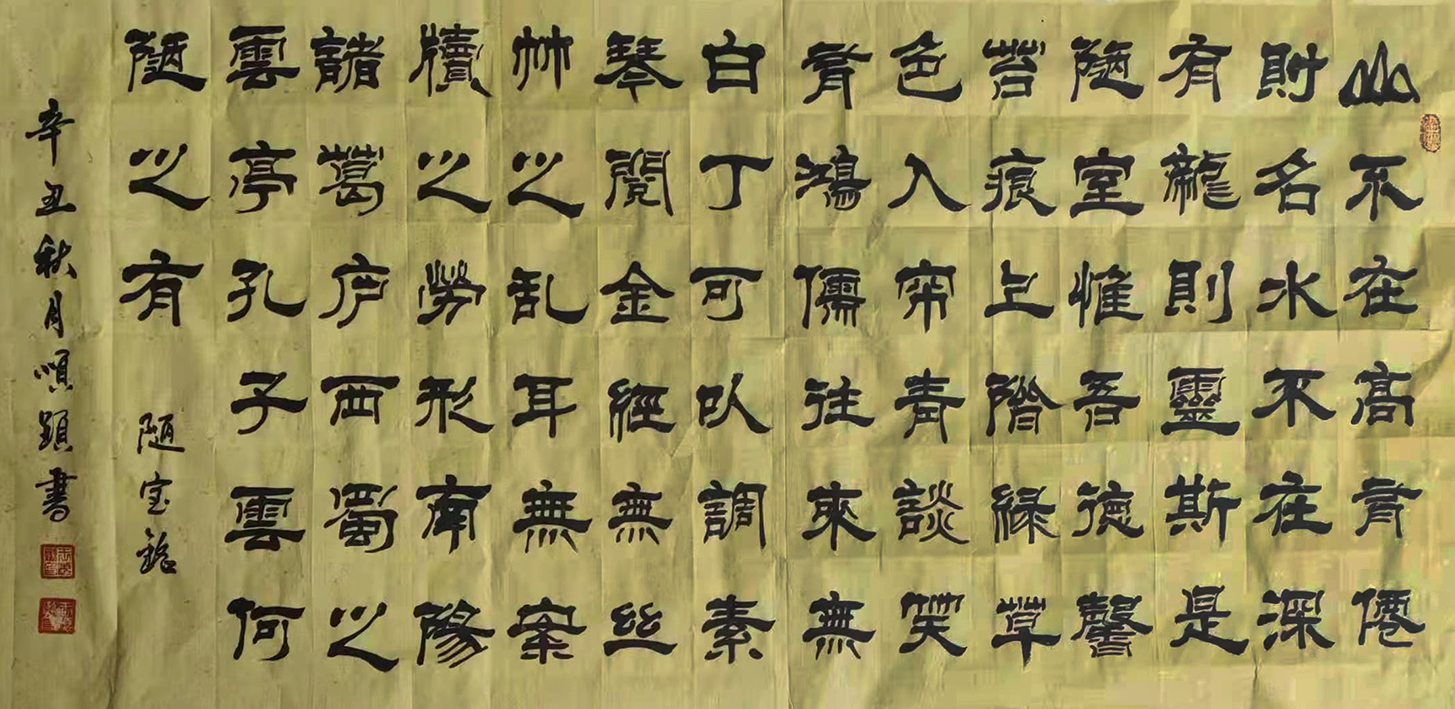 山不在高有僊
則名水不在深
有龍則靈斯是
陋室惟吾德馨
苔痕上階緑草
色入帘青談笑
有鴻儒往來無
白丁可以調素
琴閱金經無丝
竹之乱耳無案
牘之勞形南陽
諸葛庐西蜀之
雲亭孔子雲何
陋之有 陋室銘
辛丑秋月書